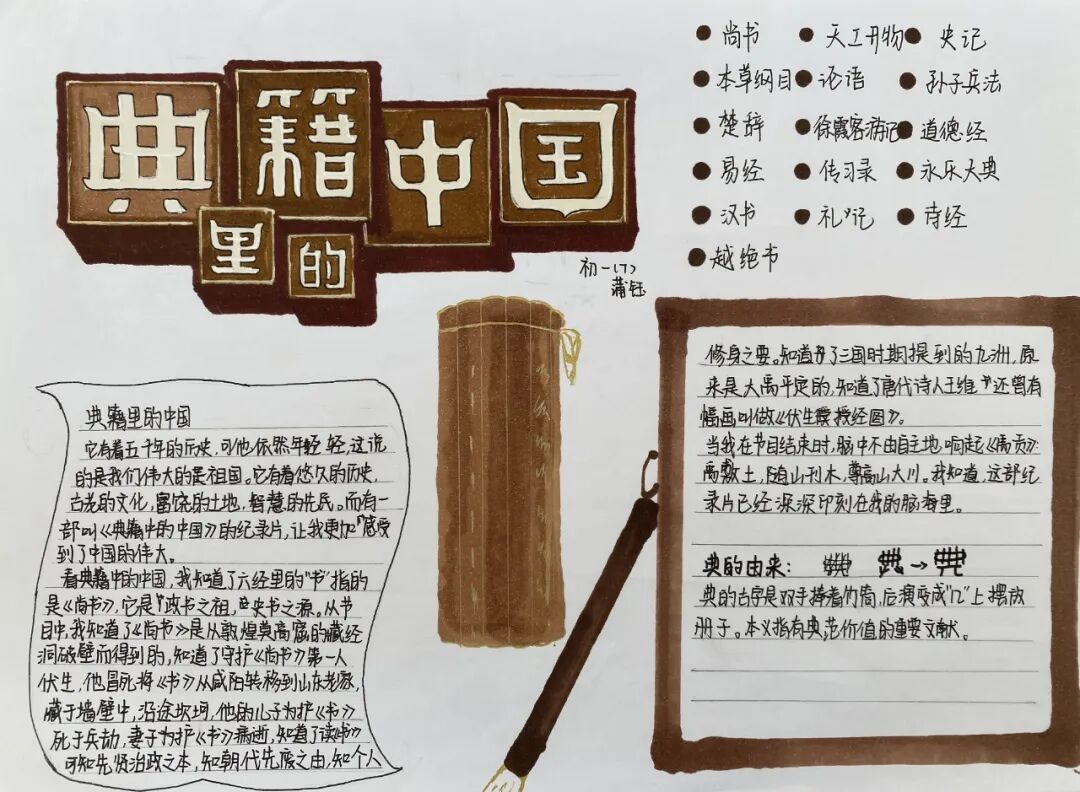 典籍里的中国
初一(7)
蒲钰
尚书 天工开物 史记
本草纲目 论语 孙子兵法
楚辞 徐霞客游记 道德经
易经 传习录 永乐大典
汉书 礼记 诗经
越绝书
典籍里的中国
它有着五千年的历史,可他依然年轻轻,这说
的是我们伟大的是祖国。它有着悠久的历史,
古老的文化,富饶的土地,智慧的先民。而有一
部叫《典籍中的中国》的纪录片,让我更加感受
到了中国的伟大。
看典籍中的中国,我知道了六经里的“书”指的
是《尚书》,它是“政书之祖,史书之源。从节
目中,我知道了《尚书》是从敦煌莫高窟的藏经
洞破壁而得到的,知道了守护《尚书》第一人
伏生,他冒死将《书》从咸阳转移到山东老家,
藏于墙壁中,沿途坎坷,他的儿子为护《书》
死于兵劫,妻子为护《书》病逝,知道了读《书》
可知先贤治政之本,知朝代先废之由,知个人
修身之要。知道了三国时期提到的九洲,原
来是大禹平定的,知道了唐代诗人王维 还曾有
幅画叫做《伏生授经图》。
当我在节目结束时,脑中不由自主地,响起《禹贡》:
禹敷土,随山刊木,尊高山大川。我知道,这部纪
录片已经深深印刻在我的脑海里。
典的由来: →
典的古字是双手捧着竹简,后演变成“几”上摆放
册子。本义指有典范价值的重要文献。